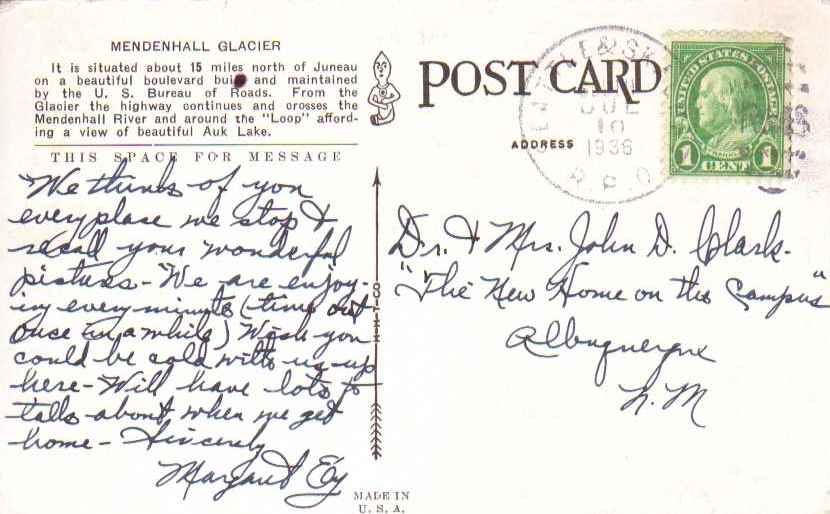 MENDENHALL GLACIER
It is situated about 15 miles north of Juneau
on a beautiful boulevard built and maintained
by the U. S. Bureau of Roads. From the
Glacier the highway continues and crosses the
Mendenhall River and around the "Loop" afford-
ing a view of beautiful Auk Lake.
THIS SPACE FOR MESSAGE
We think of you
every place we stop &
recall your wonderful
pictures - We are enjoy-
ing every minute (time out
once in a while) Wish you
could be cold with us up
here - Will have lots to
talk about when we get
home - Sincerely
Margaret Ey
POST CARD
ADDRESS
SEATTLE & SK
JUL
10
1936
R.P.O.
UNITED STATES POSTAGE
FRANKLIN
1 CENT 1
Dr. & Mrs. John D. Clark.
"The New Home on the Campus"
Albuquerque
N. M
MADE IN
U. S. A.